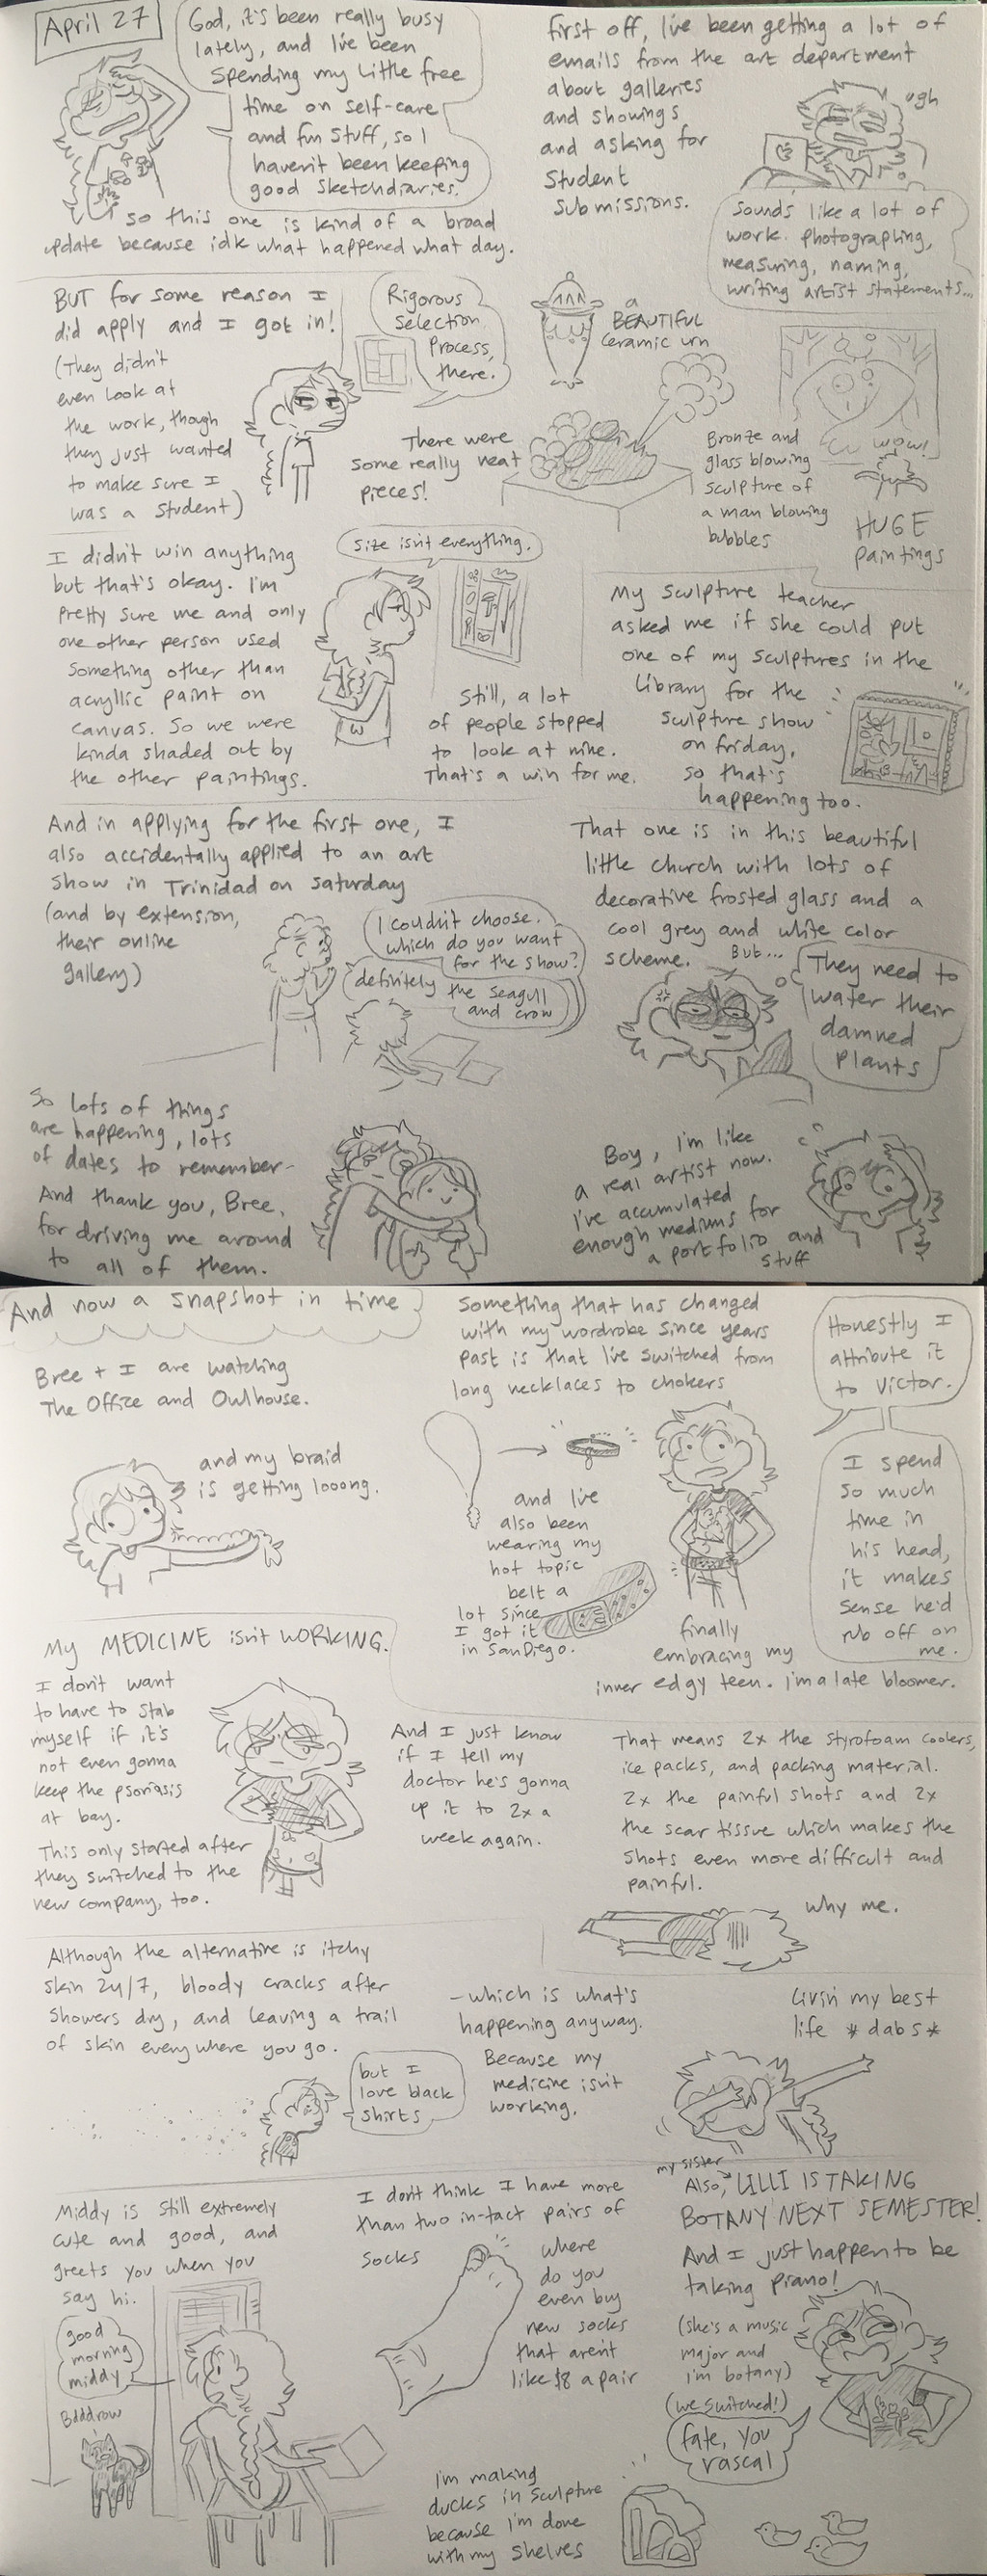 April 27
God, it's been really busy
lately, and I've been
spending my little free
time on self-care
and fun stuff, so I
haven't been keeping
good sketchdiaries.
so this one is kind of a broad
update because idk what happened what day.
First off, I've been getting a lot of
emails from the art department
about galleries
and showings
and asking for
student
submissions.
ugh
Sounds like a lot of
work. photographing,
measuring, naming,
writing artist statements...
BUT for some reason I
did apply and I got in!
(They didn't
even look at
the work, though
they just wanted
to make sure I
was a student)
Rigorous
selection
process,
there.
There were
some really neat
pieces!
a
BEAUTIFUL
ceramic urn
Bronze and
glass blowing
sculpture of
a man blowing
bubbles
wow!
HUGE
paintings
I didn't win anything
but that's okay. I'm
pretty sure me and only
one other person used
something other than
acryllic paint on
canvas. So we were
kinda shaded out by
the other paintings.
Size isn't everything.
Still, a lot
of people stopped
to look at mine.
That's a win for me.
My sculpture teacher
asked me if she could put
one of my sculptures in the
library for the
sculpture show
on friday,
so that's
happening too.
And in applying for the first one, I
also accidentally applied to an art
show in Trinidad on Saturday
(and by extension,
their online
gallery)
I couldn't choose.
which do you want
for the show?
definitely the seagull
and crow
That one is in this beautiful
little church with lots of
decorative frosted glass and a
cool grey and white color
scheme. But...
They need to
water their
damned
plants
So lots of things
are happening, lots
of dates to remember-
And thank you, Bree,
for driving me around
to all of them.
Boy, I'm like
a real artist now.
I've accumulated
enough mediums for
a portfolio and
stuff
And now a snapshot in time
Bree + I are watching
The Office and Owlhouse.
and my braid
is getting looong.
Something that has changed
with my wardrobe since years
past is that I've switched from
long necklaces to chokers
and I've
also been
wearing my
hot topic
belt a
lot since
I got it
in San Diego.
finally
embracing my
inner edgy teen. I'm a late bloomer.
Honestly I
attribute it
to Victor.
I spend
so much
time in
his head,
it makes
sense he'd
rub off on
me.
My MEDICINE isn't WORKING.
I don't want
to have to stab
myself if it's
not even gonna
keep the psoriasis
at bay.
This only started after
they switched to the
new company, too.
And I just know
if I tell my
doctor he's gonna
up it to 2x a
week again.
That means 2x the styrofoam coolers,
ice packs, and packing material.
2x the painful shots and 2x
the scar tissue which makes the
shots even more difficult and
painful.
why me.
Although the alternative is itchy
skin 24/7, bloody cracks after
showers dry, and leaving a trail
of skin everywhere you go.
but I
love black
shirts
-which is what's
happening anyway.
Because my
medicine isn't
working.
Livin my best
life *dabs*
Middy is still extremely
cute and good, and
greets you when you
say hi.
good
morning
middy
Bdddrow
I don't think I have more
than two in-tact pairs of
socks
where
do you
even buy
new socks
that aren't
like $8 a pair
my sister
Also, LILLI IS TAKING
BOTANY NEXT SEMESTER!
And I just happen to be
taking piano!
(she's a music
major and
i'm botany)
(we switched!)
fate, you
rascal
I'm making
ducks in sculpture
because I'm done
with my shelves